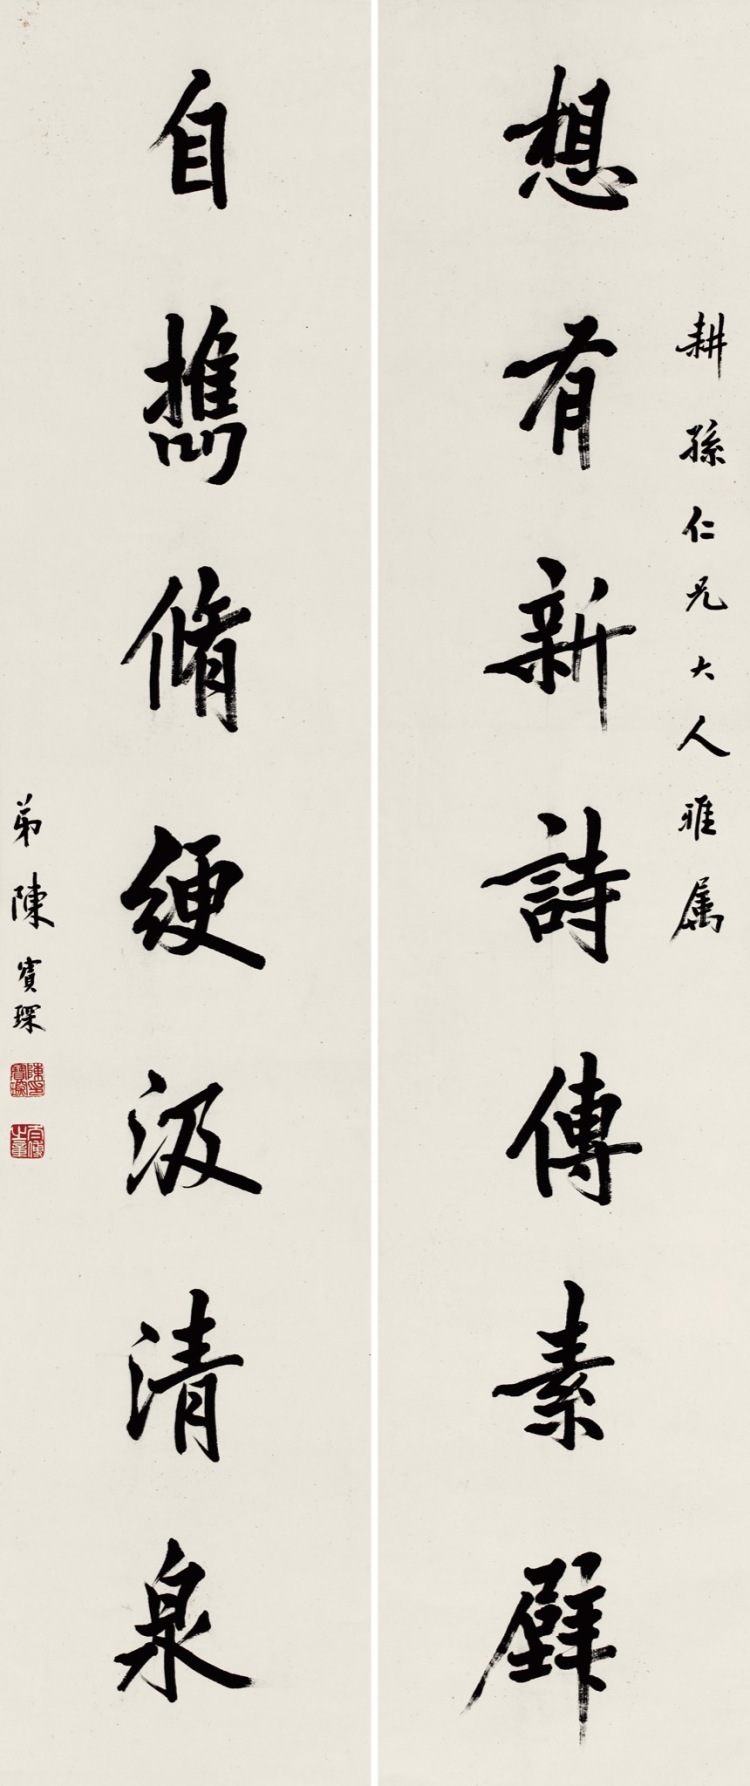 耕孫仁兄大人雅属
想有新詩傳素壁
自攜脩綆汲清泉
弟陳寶琛
陳寶琛印